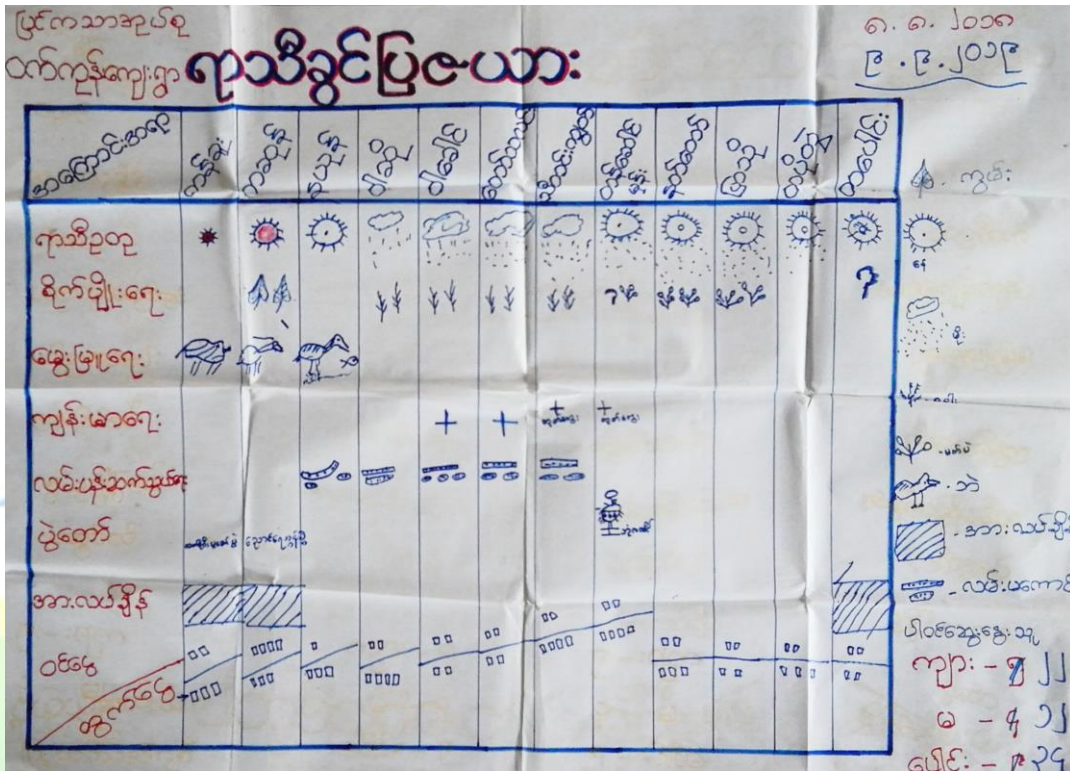 ပြင်ကသာအုပ်စု
ဝက်ကုန်းကျေးရွာ ရာသီခွင်ပြဇယား
၈. ၈. ၂၀၁၈
၉. ၉. ၂၀၁၉
အကြောင်းအရာ
တန်ခူး
ကဆုန်
နယုန်
ဝါဆို
ဝါခေါင်
တော်သလင်း
သီတင်းကျွတ်
တန်ဆောင်မုန်း
နတ်တော်
ပြာသို
တပို့တွဲ
တပေါင်း
ရာသီဥတု
စိုက်ပျိုးရေး
မွေးမြူရေး
ကျန်းမာရေး
လမ်းပန်းဆက်သွယ်ရေး
ပွဲတော်
ညောင်ရေ
အားလပ်ချိန်
ဝင်ငွေ
ထွက်ငွေ
- ကွမ်း
နေ
မိုး
- စပါး
- မတ်ပဲ
- ဘဲ
- အားလပ်ချိန်
- လမ်းမကောင်း
ပါဝင်ဆွေးနွေးသူ
ကျား - ၂၂
မ - ၁၂
ပေါင်း - ၃၄